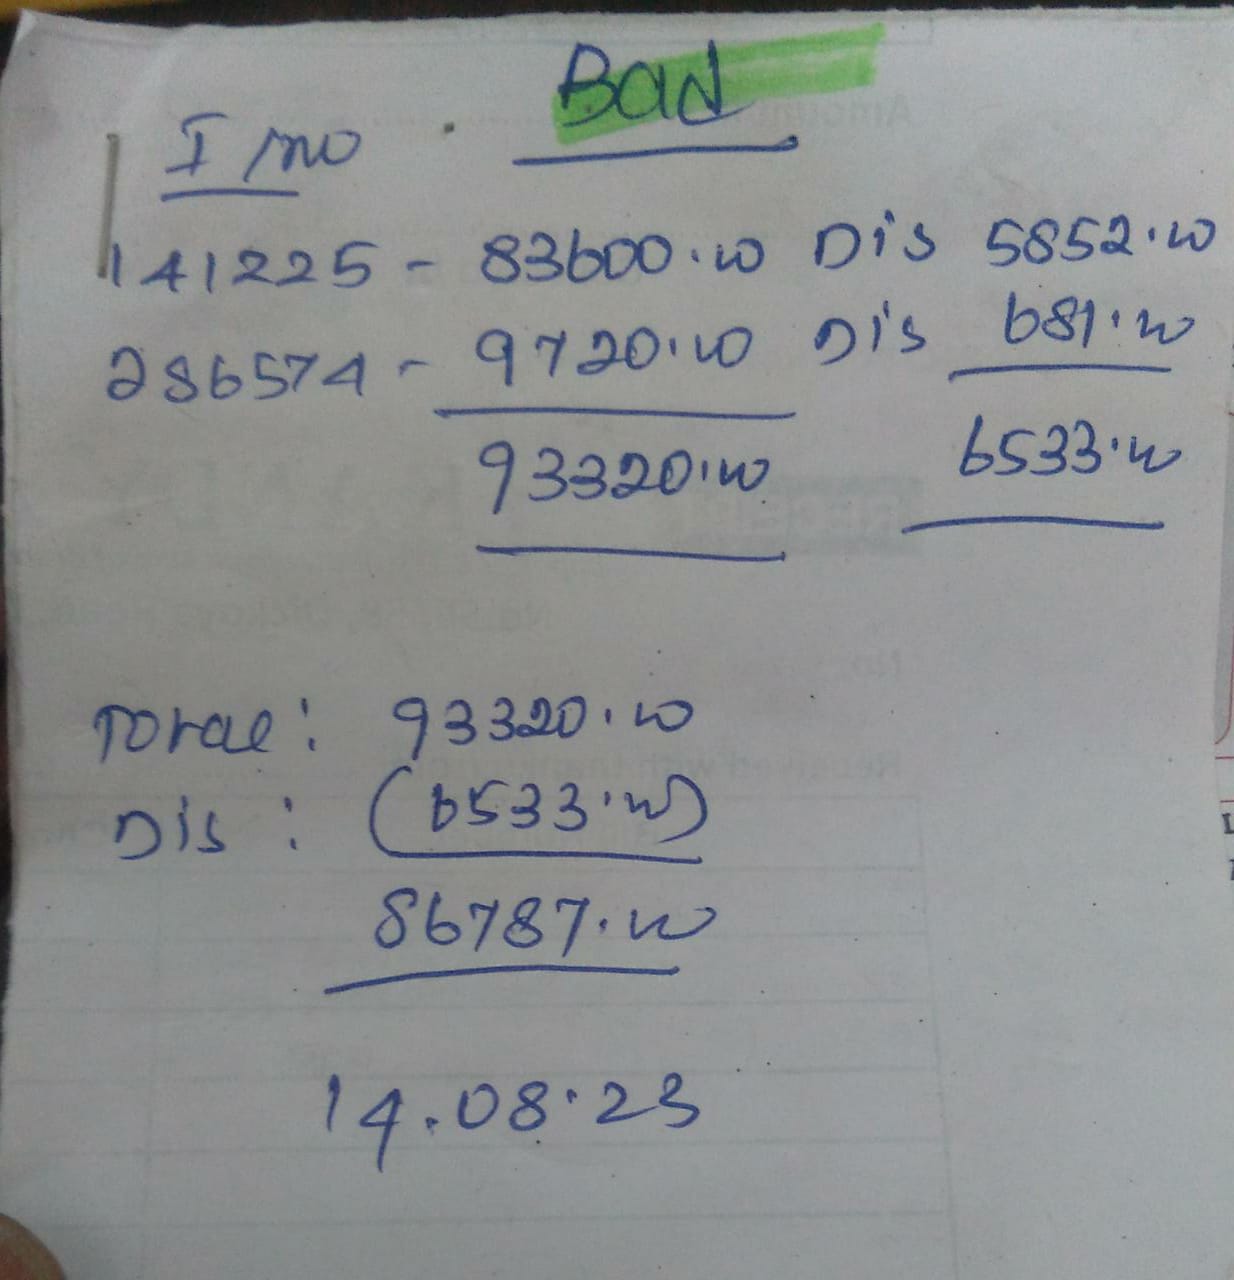 Bad
I no
141225 - 83600.00 Dis 5852.00
286574 - 9720.00 Dis 681.00
93320.00 6533.00
Total: 93320.00
Dis: (6533.00)
86787.00
14.08.23